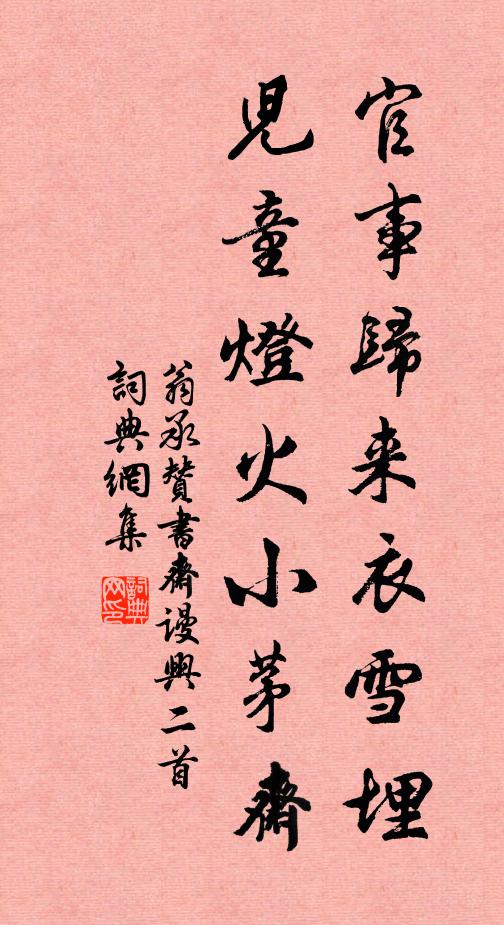 官事歸来衣雪埋
兒童燈火小茅齋
翁承贊書齋謾興二首
詞典網集
詞典網印